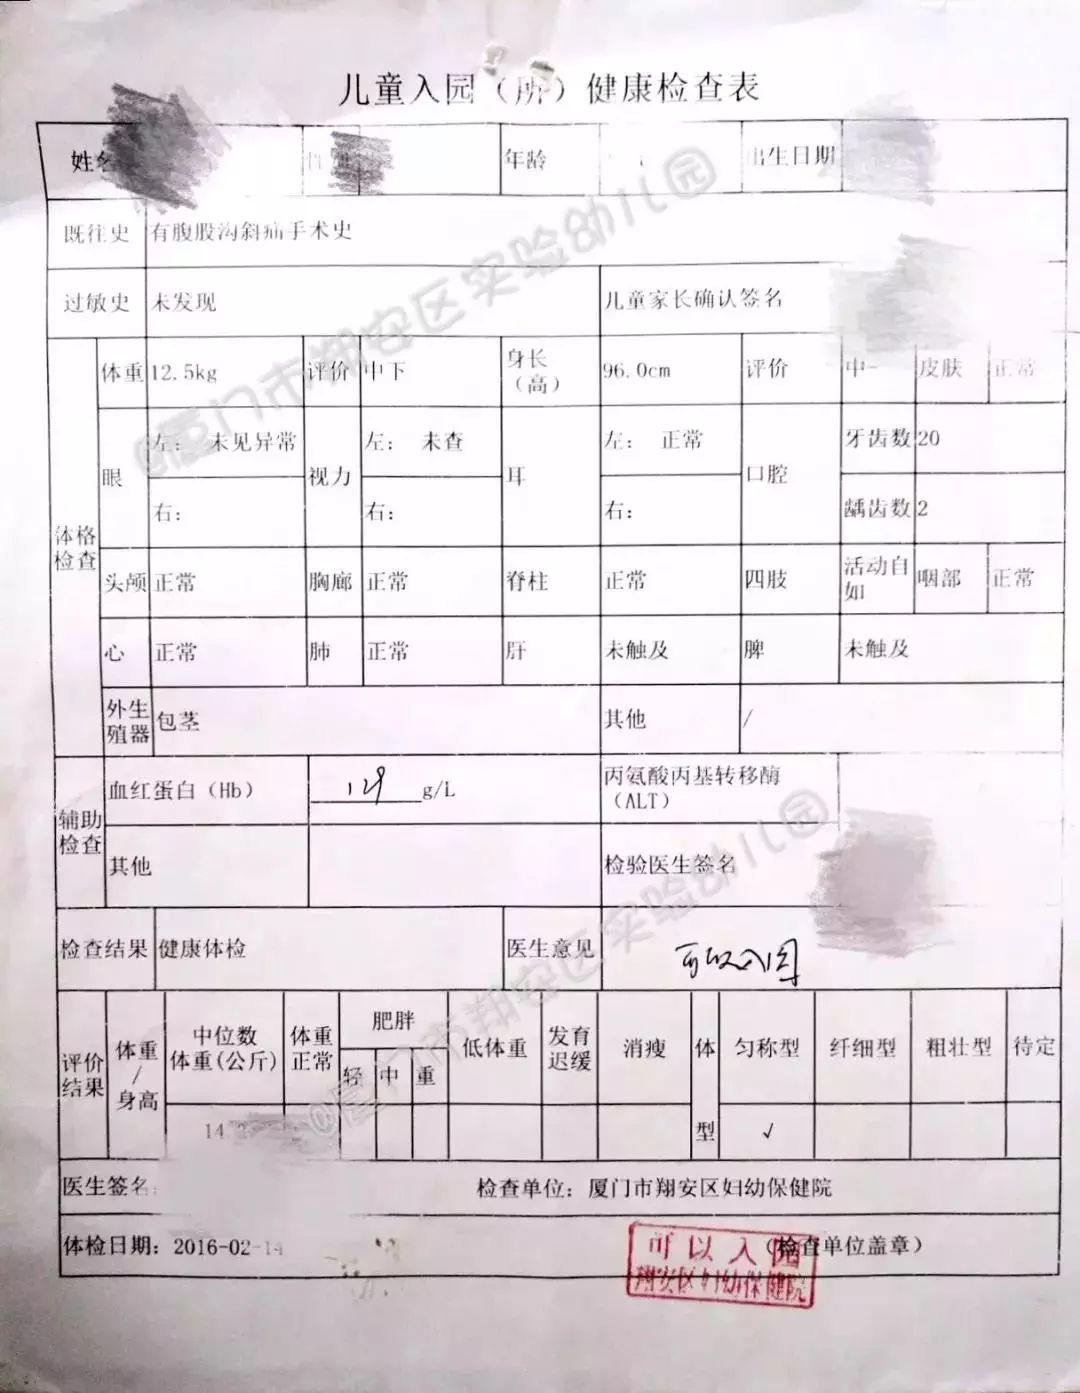 儿童入园（所）健康检查表
姓名 年龄 出生日期
既往史 有腹股沟斜疝手术史
过敏史 未发现 儿童家长确认签名
体格检查
体重 12.5kg 评价 中下 身长（高） 96.0cm 评价 中 皮肤 正常
眼 左： 未见异常 视力 左： 未查 耳 左： 正常 口腔 牙齿数 20
右： 右： 右： 龋齿数 2
头颅 正常 胸廊 正常 脊柱 正常 四肢 活动自如 咽部 正常
心 正常 肺 正常 肝 未触及 脾 未触及
外生殖器 包茎 其他 /
辅助检查
血红蛋白（Hb） 129 g/L 丙氨酸丙基转移酶（ALT）
其他 检验医生签名
检查结果 健康体检 医生意见 可以入园
评价结果 体重/身高 中位数体重(公斤) 体重正常 肥胖 轻 中 重 低体重 发育迟缓 消瘦 体型 匀称型 纤细型 粗壮型 待定
14. √
医生签名: 检查单位：厦门市翔安区妇幼保健院
体检日期：2016-02-14 （检查单位盖章）
可以入园
翔安区妇幼保健院
@厦门市翔安区实验幼儿园
@厦门市翔安区实验幼儿园